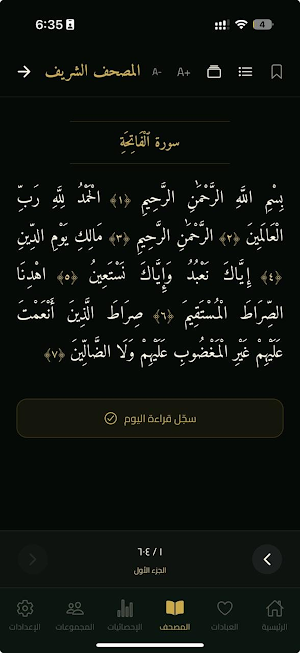 6:35
4
المصحف الشريف
A-
A+
سورة ٱلْفَاتِحَةِ
بِسْمِ اللَّهِ الرَّحْمَٰنِ الرَّحِيمِ ﴿١﴾ الْحَمْدُ لِلَّهِ رَبِّ
الْعَالَمِينَ ﴿٢﴾ الرَّحْمَٰنِ الرَّحِيمِ ﴿٣﴾ مَالِكِ يَوْمِ الدِّينِ
﴿٤﴾ إِيَّاكَ نَعْبُدُ وَإِيَّاكَ نَسْتَعِينُ ﴿٥﴾ اهْدِنَا
الصِّرَاطَ الْمُسْتَقِيمَ ﴿٦﴾ صِرَاطَ الَّذِينَ أَنْعَمْتَ
عَلَيْهِمْ غَيْرِ الْمَغْضُوبِ عَلَيْهِمْ وَلَا الضَّالِّينَ ﴿٧﴾
سجّل قراءة اليوم
١ / ٦٠٤
الجزء الأول
الرئيسية
العبادات
المصحف
الإحصائيات
المجموعات
الإعدادات